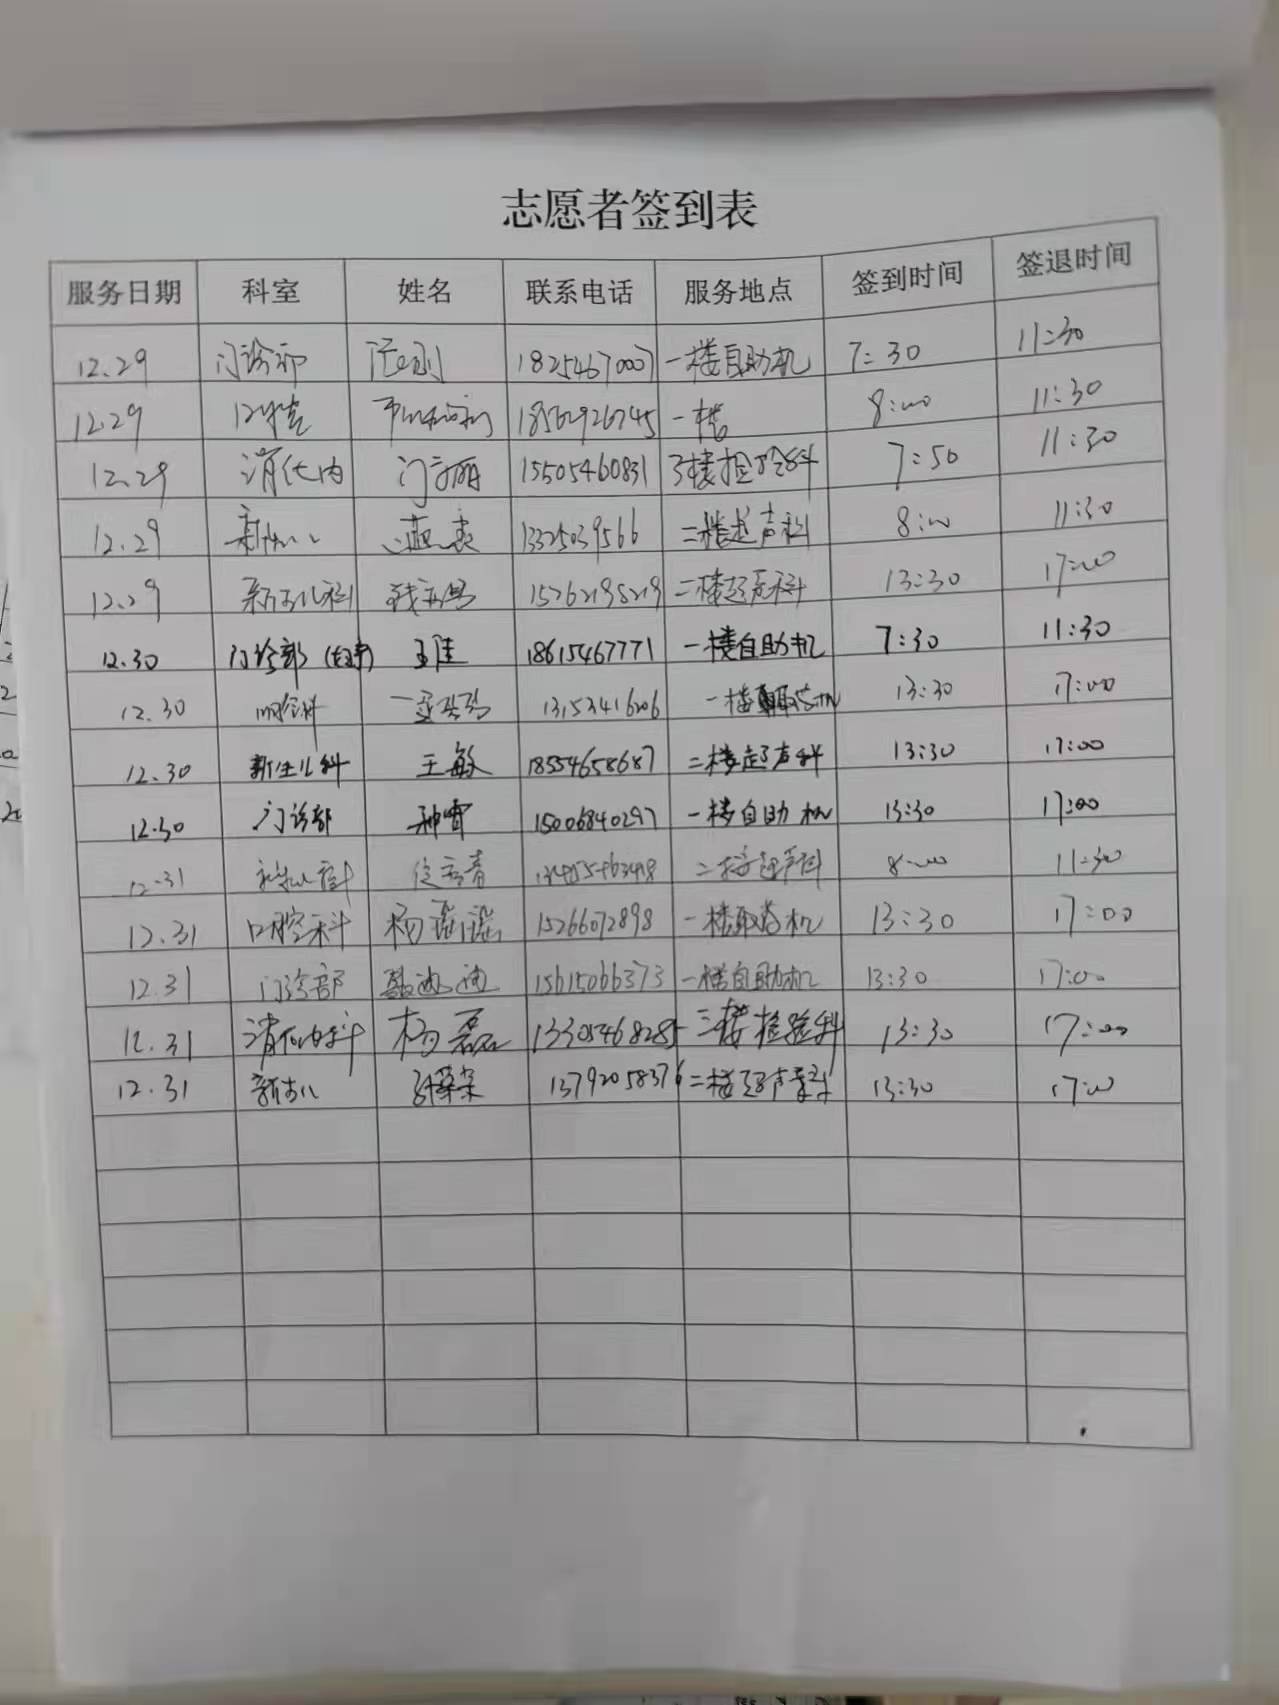 志愿者签到表
服务日期 科室 姓名 联系电话 服务地点 签到时间 签退时间
12.29 门诊部 18254670007 一楼自助机 7:30 11:30
12.29 口腔 一楼 8:00 11:30
12.29 消化内 15505460831 3楼检验科 7:50 11:30
12.29 13325039566 二楼超声科 8:00 11:30
12.29 新生儿科 二楼超声科 13:30 17:00
12.30 门诊部 王佳 18615467771 一楼自助机 7:30 11:30
12.30 口腔科 一楼取药机 13:30 17:00
12.30 新生儿科 王敏 18554658687 二楼超声科 13:30 17:00
12.30 门诊部 15006840297 一楼自助机 13:30 17:00
12.31 二楼超声科 8:00 11:30
12.31 口腔科 杨谣谣 15266072898 一楼取药机 13:30 17:00
12.31 门诊部 15615066373 一楼自助机 13:30 17:00
12.31 消化内科 杨磊 13305468285 三楼检验科 13:30 17:00
12.31 新生儿 13792058376 二楼超声科 13:30 17:00